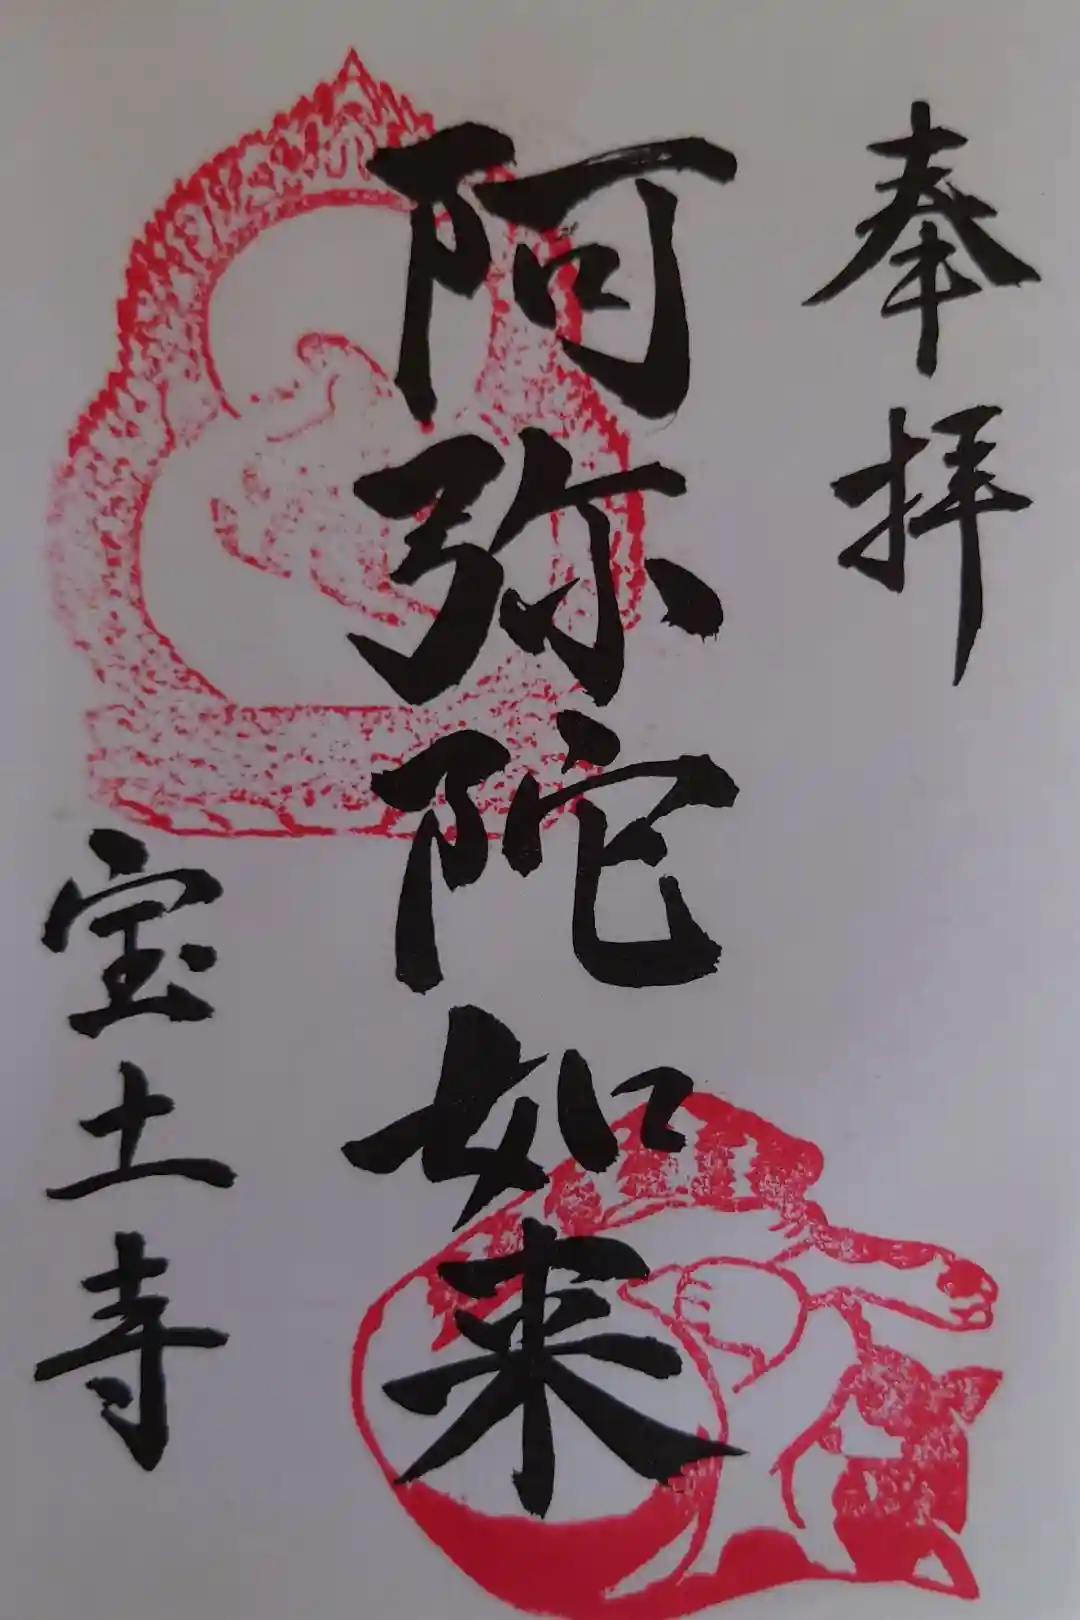 奉拝
阿弥陀如来
宝土寺